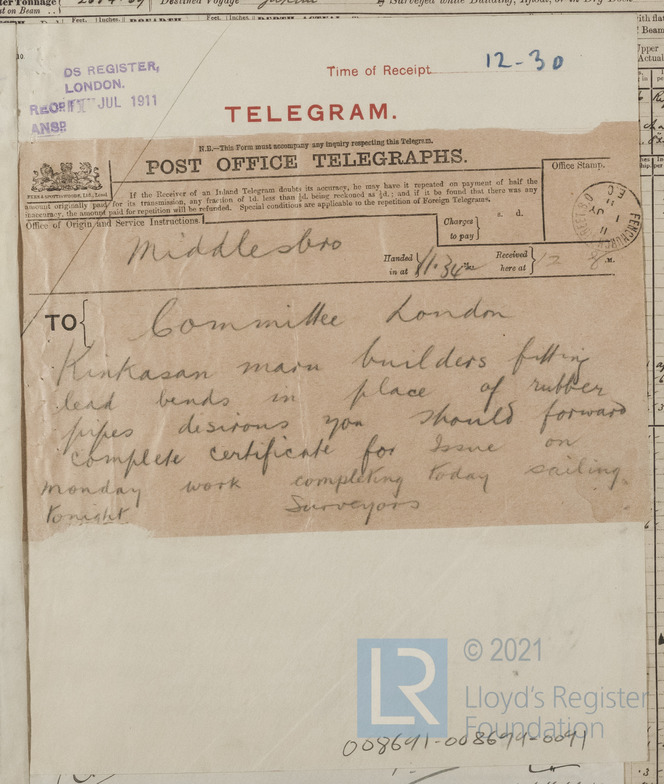 Destined Voyage
Feet. Inches. BREADTH Feet. Inches.
DS REGISTER,
LONDON.
JUL 1911
Time of Receipt 12-30
TELEGRAM.
N.B.—This Form must accompany any inquiry respecting this Telegram.
POST OFFICE TELEGRAPHS.
If the Receiver of an Inland Telegram doubts its accuracy, he may have it repeated on payment of half the
amount originally paid for its transmission, any fraction of 1d. less than ½d. being reckoned as ½d.; and if it be found that there was any
inaccuracy, the amount paid for repetition will be refunded. Special conditions are applicable to the repetition of Foreign Telegrams.
Office Stamp.
FENCHURCH
E.C.
Office of Origin and Service Instructions.
Charges to pay s. d.
Middlesbro
Handed in at 11.34 Received here at 12 8 M.
TO Committee London
Kinkasan maru builders fitting
lead bends in place of rubber
pipes desirous you should forward
complete certificate for Issue on
monday work completing today sailing
tonight Surveyors
LR
© 2021
Lloyd's Register
Foundation
008691-008699-0091